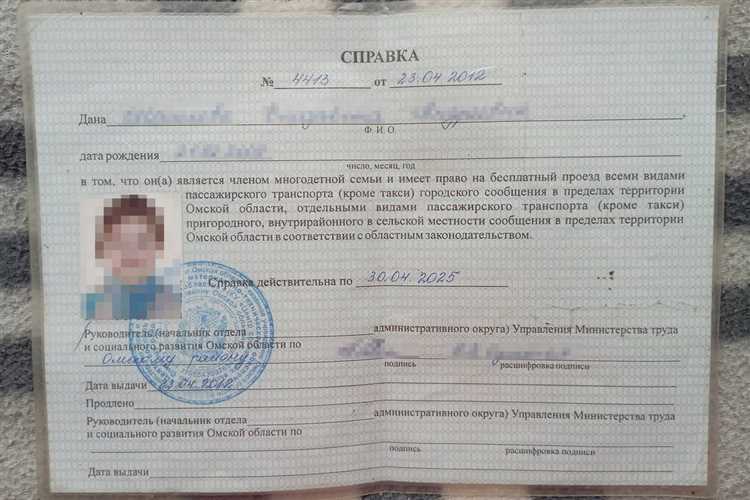 СПРАВКА
№ 4413 от 23.04 2012
Дана
Ф.И.О.
дата рождения
число, месяц, год
в том, что он(а) является членом многодетной семьи и имеет право на бесплатный проезд всеми видами
пассажирского транспорта (кроме такси) городского сообщения в пределах территории
Омской области, отдельными видами пассажирского транспорта (кроме такси)
пригородного, внутрирайонного в сельской местности сообщения в пределах территории
Омской области в соответствии с областным законодательством.
Справка действительна по 30.04. 2025
Руководитель (начальник отдела административного округа) Управления Министерства труда
и социального развития Омской области по
Омскому району
подпись расшифровка подписи
Дата выдачи 23.04.2012
Продлено
Руководитель (начальник отдела административного округа) Управления Министерства труда
и социального развития Омской области по
подпись расшифровка подписи
Дата выдачи